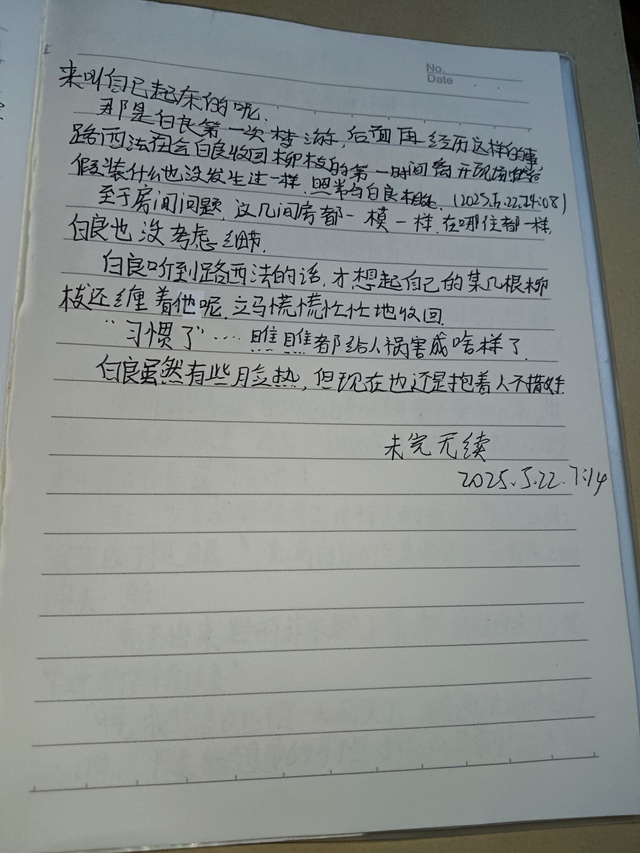 No.
Date
来叫自己起床的呢.
那是白良第一次梦游,后面再经历这样的事
路西法都会白良收回柳枝的第一时间离开现场
假装什么也没发生过一样.照常与白良相处.(2025.5.22.7:08)
至于房间问题.这几间房都一模一样.在哪住都一样,
白良也没考虑细节.
白良听到路西法的话,才想起自己的某几根柳
枝还缠着他呢.立马慌慌忙忙地收回.
"习惯了"....瞧瞧都给人祸害成啥样了.
白良虽然有些脸热,但现在也还是抱着人不撒手.
未完无续
2025.5.22.7:14